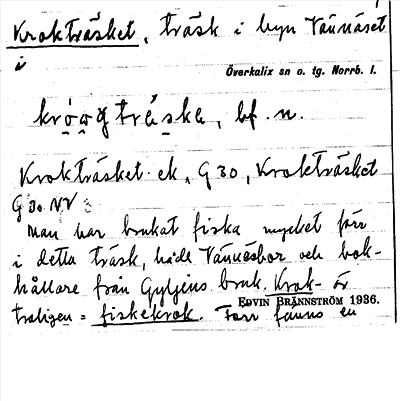 Krokträsket, träsk i byn Vännäset
i
Överkalix sn o. tg. Norrb. l.
bf. n.
Krokträsket ek. G 30, Krokträsket
G 30 NV
Man har brukat fiska mycket förr
i detta träsk, både Vännäsbor och bok-
hållare från Gyljens bruk. Krok- är
EDVIN BRÄNNSTRÖM 1936.
troligen = fiskekrok. Förr fanns en